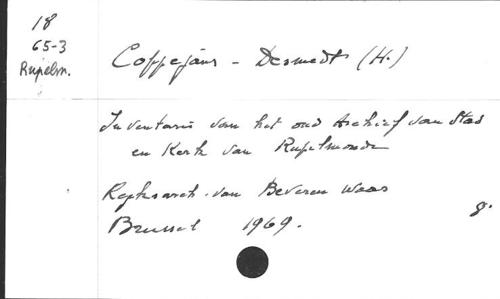 18
65-3
Rupelm.
Coppejans - Desmedt (H.)
Inventaris van het oud Archief van Stad
en Kerk van Rupelmonde
Rijksarch. van Beveren Waas
Brussel 1969.
8.